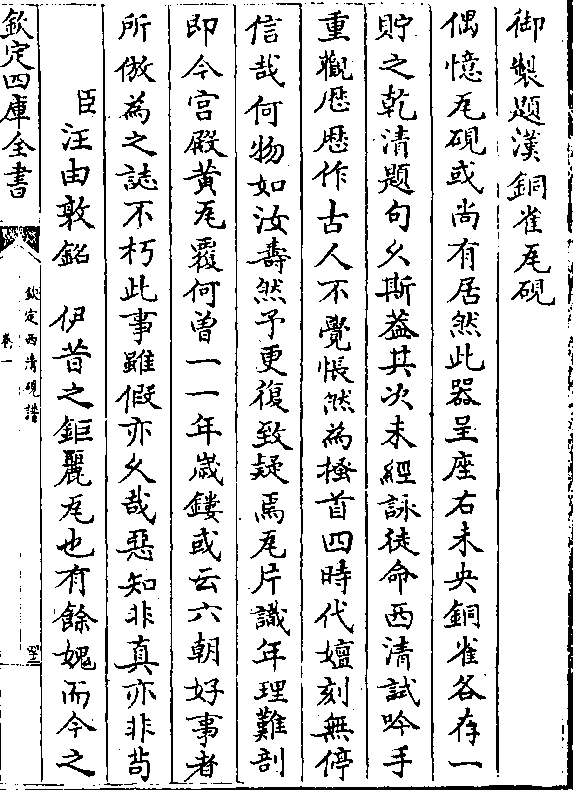 御製題漢銅雀瓦硯
偶憶瓦硯或尚有居然此器呈座右未央銅雀各存一
貯之乾清題句久斯葢其次未經詠徒命西清試吟手
重觀歴歴作古人不覺悵然為搔首四時代嬗刻無停
信哉何物如汝壽然予更復致疑焉瓦片識年理難剖
即今宫殿黄瓦覆何曽一一年嵗鏤或云六朝好事者
所倣為之誌不朽此事雖假亦久哉惡知非真亦非茍
臣汪由敦銘　伊昔之鉅麗瓦也有餘媿而今之
欽定四庫全書
欽定西清硯譜
卷一